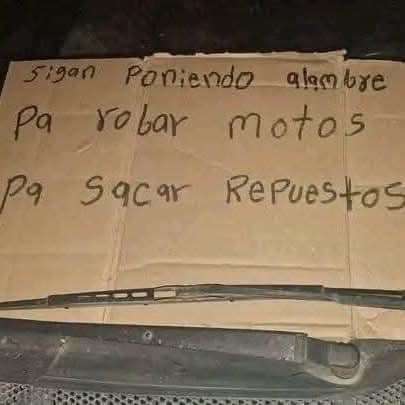 sigan Poniendo alambre
Pa robar motos
Pa sacar Repuestos